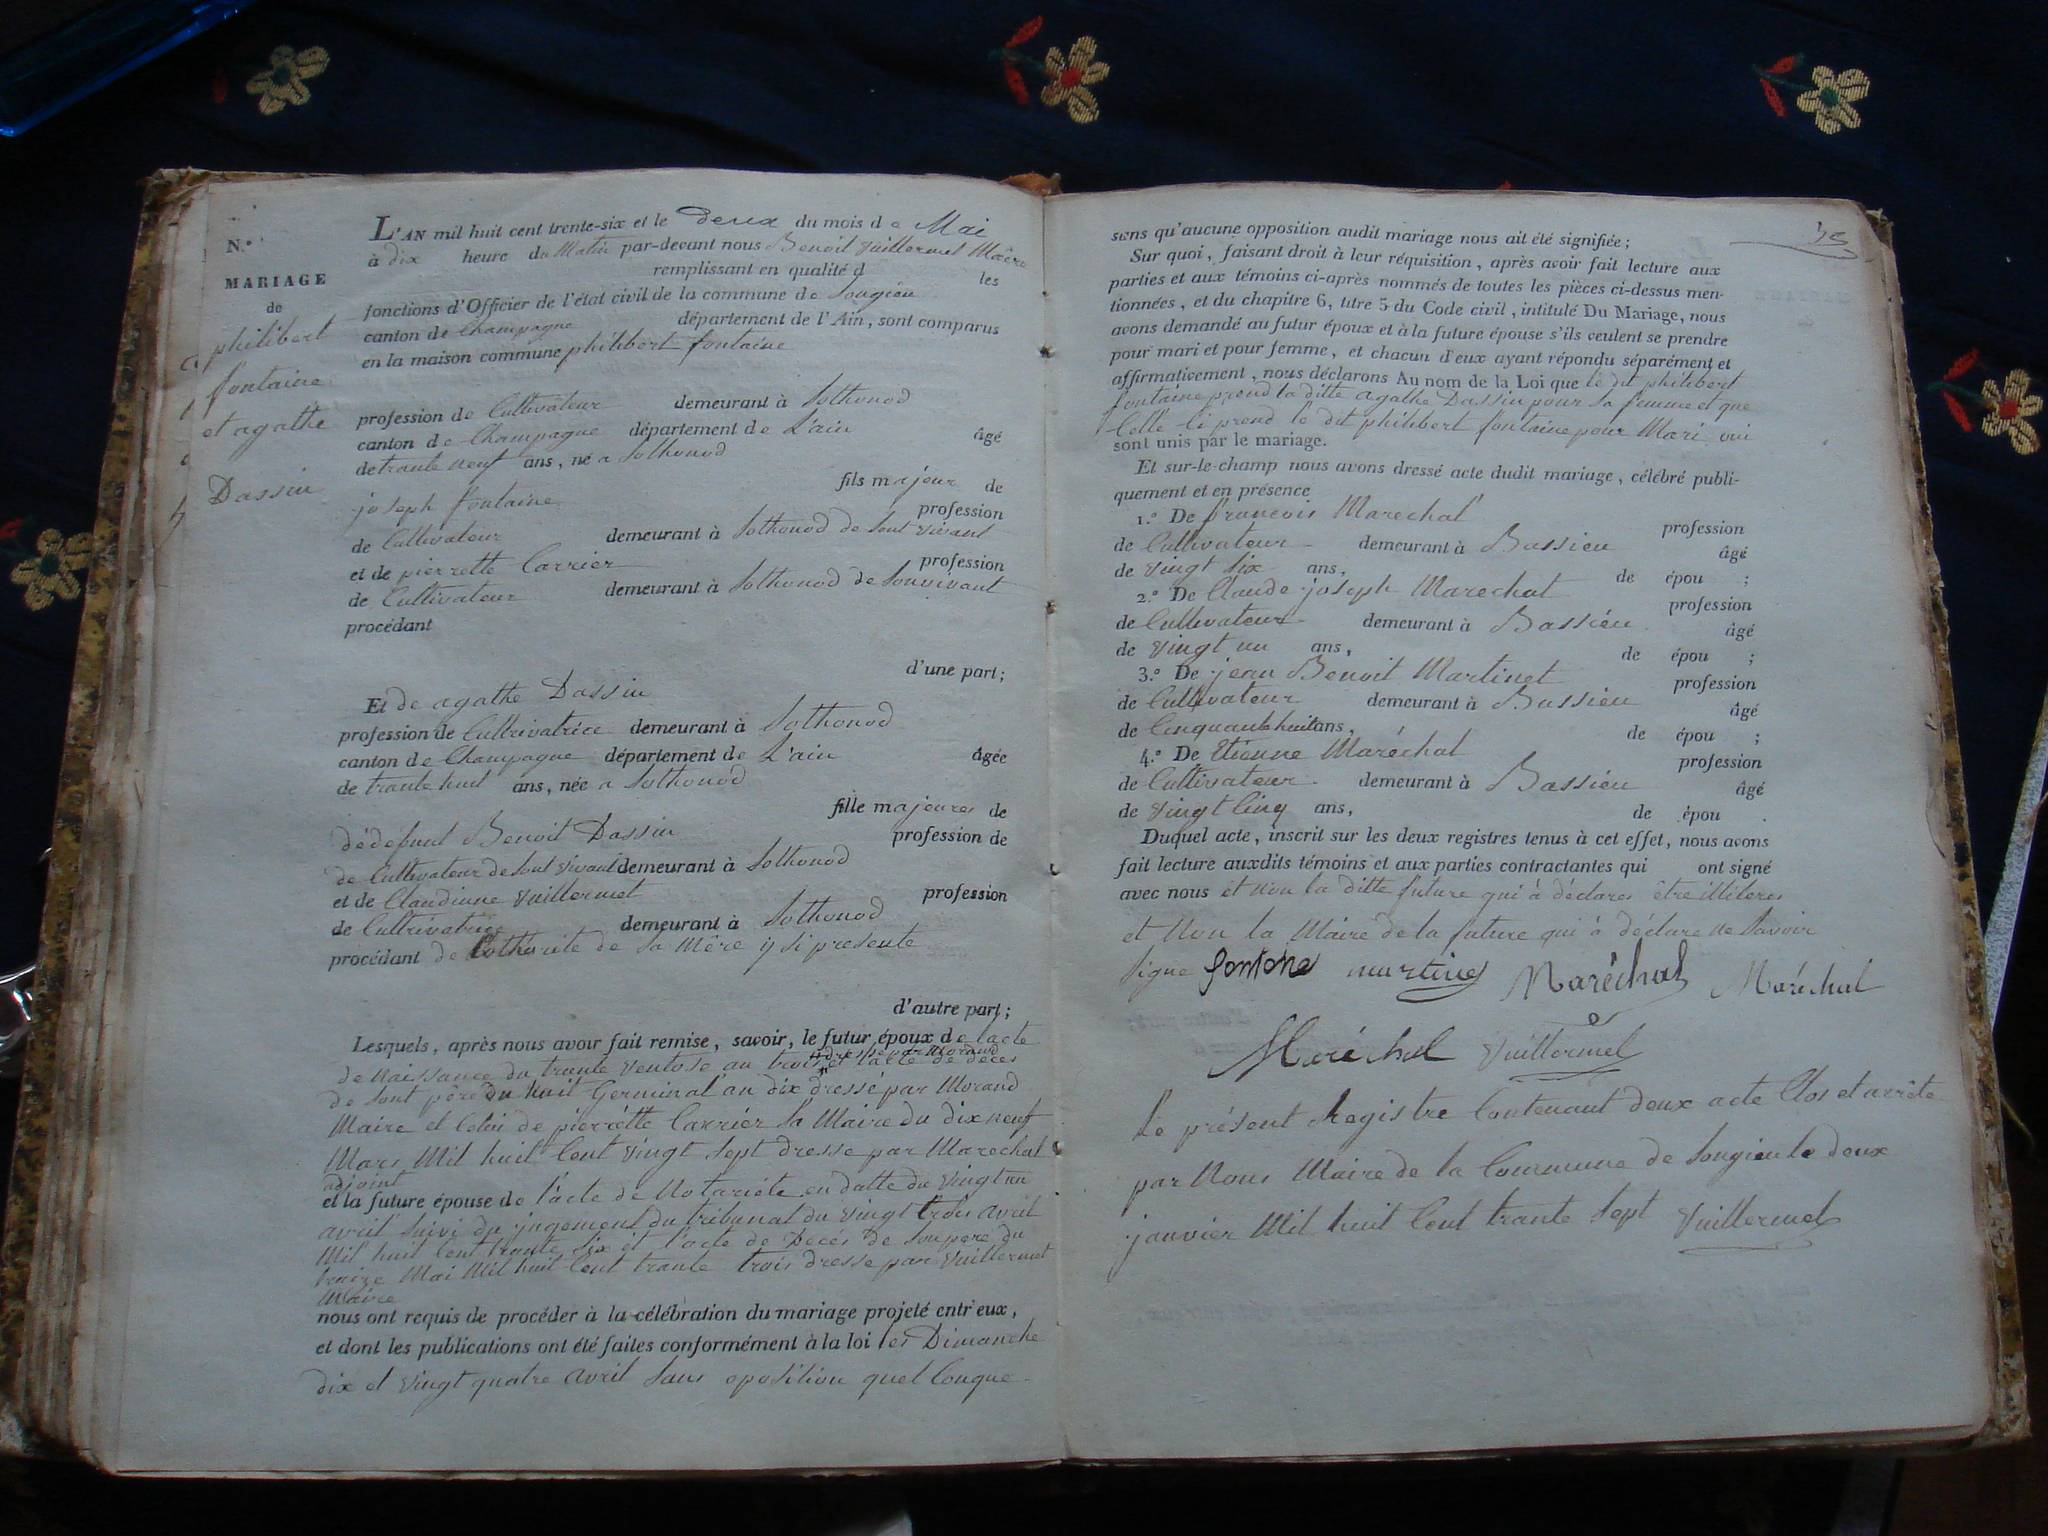 N.º
MARIAGE
de
philibert
fontaine
et agathe
Dassin
L'AN mil huit cent trente-six et le deux du mois de Mai
à dix heure du Matin par-devant nous Benoit Vuillermet Maire
remplissant en qualité d les
fonctions d'Officier de l'état civil de la commune de Songieu
canton de Champagne département de l'Ain, sont comparus
en la maison commune philibert fontaine
profession de Cultivateur demeurant à Sothonod
canton de Champagne département de L'ain âgé
de trante neuf ans, né a Sothonod
fils majeur de
joseph fontaine profession
de Cultivateur demeurant à Sothonod de Sont vivant
et de pierrette Carrier profession
de Cultivateur demeurant à Sothonod de Sonvivant
procédant
d'une part;
Et de agathe Dassin
profession de Cultrivatrice demeurant à Sothonod
canton de Champagne département de L'ain âgée
de trante huit ans, née a Sothonod
fille majeures de
dédefunt Benoit Dassin profession de
de Cultivateur de Sont vivant demeurant à Sothonod
et de Claudinne Vuillermet profession
de Cultrivatrice demeurant à Sothonod
procédant de Lothorité de Sa Mère y si presente
d'autre part;
Lesquels, après nous avoir fait remise, savoir, le futur époux de lacte
de Naissance du trante Ventose an trois dressé par Morand et lacte de déces
de Sont père du huit Germinal an dix dressé par Morand
Maire et Celui de pierrette Carrier Sa Maire du dix neuf
Mars Mil huit Cent Vingt Sept dresse par Marechal
adjoint
et la future épouse de l'acte de Notariéte en datte du Vingt un
avril Suivi du jugement du tribunal du Vingt trois avril
Mil huit Cent trante Six et l'acte de Deces de Son pere du
traize Mai Mil huit Cent trante trois dresse par Vuillermet
Maire
nous ont requis de procéder à la célébration du mariage projeté entr'eux,
et dont les publications ont été faites conformément à la loi les Dimanche
dix et Vingt quatre avril Sans oposition quel Conque
sans qu'aucune opposition audit mariage nous ait été signifiée;
Sur quoi, faisant droit à leur réquisition, après avoir fait lecture aux
parties et aux témoins ci-après nommés de toutes les pièces ci-dessus men-
tionnées, et du chapitre 6, titre 5 du Code civil, intitulé Du Mariage, nous
avons demandé au futur époux et à la future épouse s'ils veulent se prendre
pour mari et pour femme, et chacun d'eux ayant répondu séparément et
affirmativement, nous déclarons Au nom de la Loi que le dit philibert
fontaine prend la ditte agathe Dassin pour Sa femme et que
Celle Ci prend le dit philibert fontaine pour Mari
sont unis par le mariage.
Et sur-le-champ nous avons dressé acte dudit mariage, célébré publi-
quement et en présence
1.º De francois Marechal profession
de Cultivateur demeurant à Bassieu âgé
de Vingt Six ans, de épou ;
2.º De Claude joseph Marechal profession
de Cultivateur demeurant à Bassieu âgé
de Vingt un ans, de épou ;
3.º De jean Benoit Martinet profession
de Cultivateur demeurant à Bassieu âgé
de Cinquante huit ans, de épou ;
4.º De Etienne Maréchal profession
de Cultivateur demeurant à Bassieu âgé
de Vingt Cinq ans, de épou .
Duquel acte, inscrit sur les deux registres tenus à cet effet, nous avons
fait lecture auxdits témoins et aux parties contractantes qui ont signé
avec nous et non la ditte future qui à déclares être illiteres
et Non la Maire de la future qui à déclare ne Savoir
Signe fontane martinet Maréchal Maréchal
Maréchal Vuillermet
Le présent Registre Contenant deux acte Clos et arrête
par Nous Maire de la Commune de Songieu le deux
janvier Mil huit Cent trante Sept Vuillermet